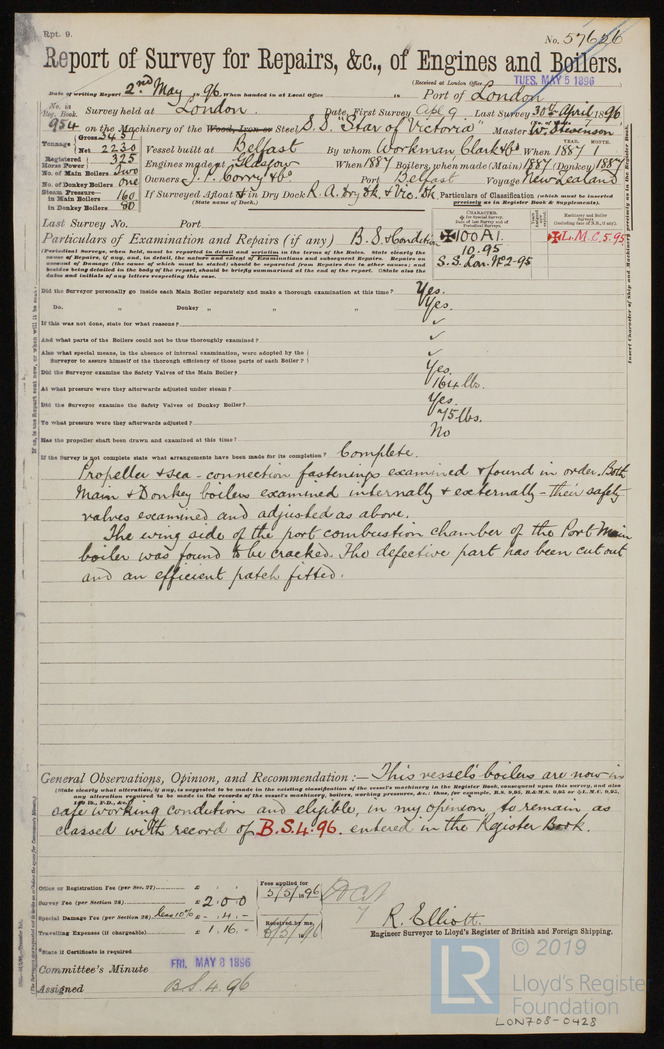 Rpt. 9.
No. 57626
Report of Survey for Repairs, &c., of Engines and Boilers.
(Received at London Office TUES. MAY 5 1896
Date of writing Report 2nd May 1896 When handed in at Local Office 18 Port of London
No. in Reg. Book. Survey held at London Date, First Survey Apl 9 Last Survey 30th April 1896
954 on the Machinery of the Wood, Iron or Steel S.S. "Star of Victoria" Master W. Stevenson
Tonnage Gross 3431
Net 2230 Vessel built at Belfast By whom Workman Clark & Co When 1887 1
Registered Horse Power 325 Engines made at Glasgow When 1887 Boilers, when made (Main) 1887 (Donkey) 1887
No. of Main Boilers Two Owners J. P. Corry & Co Port Belfast Voyage New Zealand
No. of Donkey Boilers One
Steam Pressure in Main Boilers 160 If Surveyed Afloat & in Dry Dock R. A. Dry Dk. & Vic. Dk
in Donkey Boilers 80 (State name of Dock.)
Particulars of Classification (which must be inserted precisely as in Register Book & Supplements).
Last Survey No. Port
Particulars of Examination and Repairs (if any) B.S. & Condition
(Periodical Surveys, when held, must be reported in detail and seriatim in the terms of the Rules. State clearly the
cause of Repairs, if any, and, in detail, the nature and extent of Examinations and subsequent Repairs. Repairs on
account of Damage (the cause of which must be stated) should be separated from Repairs due to other causes; and
besides being detailed in the body of the report, should be briefly summarised at the end of the report. State also the
dates and initials of any letters respecting this case.
CHARACTER.
100A1.
10.95
S.S. Lon. No 2-95
Machinery and Boiler Surveys
L.M.C. 5.95
Did the Surveyor personally go inside each Main Boiler separately and make a thorough examination at this time? Yes.
Do. " Donkey " " " Yes.
If this was not done, state for what reasons? ✓
And what parts of the Boilers could not be thus thoroughly examined? ✓
Also what special means, in the absence of internal examination, were adopted by the
Surveyor to assure himself of the thorough efficiency of those parts of each Boiler? ✓
Did the Surveyor examine the Safety Valves of the Main Boiler? Yes.
At what pressure were they afterwards adjusted under steam? 164 lbs.
Did the Surveyor examine the Safety Valves of Donkey Boiler? Yes.
To what pressure were they afterwards adjusted? 75 lbs.
Has the propeller shaft been drawn and examined at this time? No
If the Survey is not complete state what arrangements have been made for its completion? Complete.
Propeller & sea-connection fastenings examined & found in order. Both
Main & Donkey boilers examined internally & externally - their safety
valves examined and adjusted as above.
The wing side of the port combustion chamber of the Port Main
boiler was found to be cracked. The defective part has been cut out
and an efficient patch fitted.
General Observations, Opinion, and Recommendation:— This vessel's boilers are now in
(State clearly what alteration, if any, is suggested to be made in the existing classification of the vessel's machinery in the Register Book, consequent upon this survey, and also
any alteration required to be made in the records of the vessel's machinery, boilers, working pressures, &c.: thus, for example, B.S. 9,95, B.&M.S. 9,95 or L.M.C. 9,95,
safe working condition and eligible, in my opinion, to remain as
classed with record of B.S.4.96. entered in the Register Book.
Office or Registration Fee (per Sec. 27) £
Survey Fee (per Section 28) £ 2.0.0
Special Damage Fee (per Section 28) less 10% £ - .4.-
Travelling Expenses (if chargeable) £ 1.16.-
Fees applied for
5/5/1896
Received by me,
R. Elliott.
Engineer Surveyor to Lloyd's Register of British and Foreign Shipping.
*State if Certificate is required
Committee's Minute FRI. MAY 8 1896
Assigned B.S. 4.96
© 2019
LR
Lloyd's Register
Foundation
LON708-0428